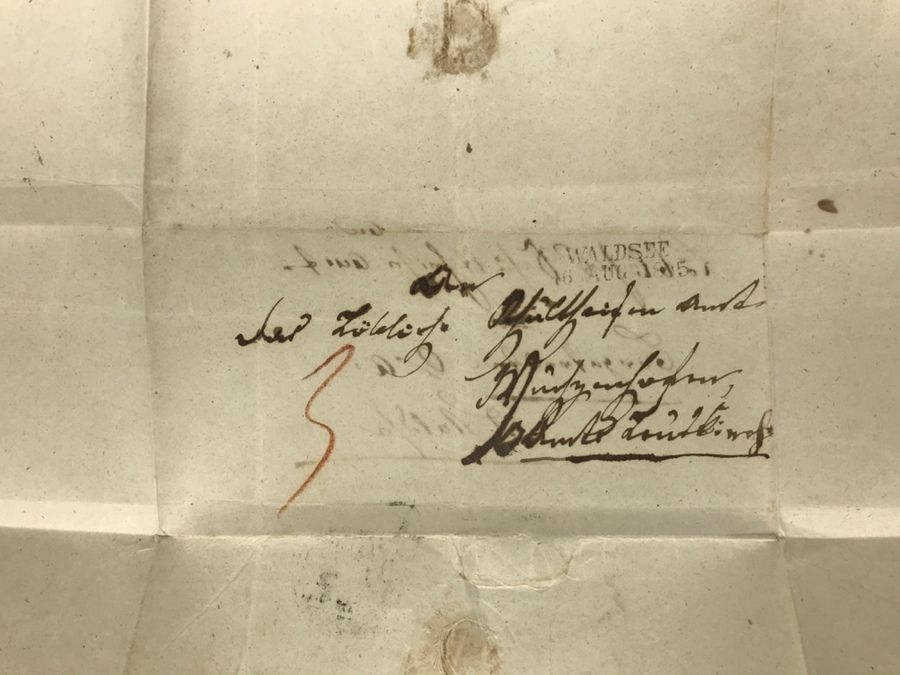 WALDSEE
6 AUG 1815
An
das Löbliche Schultheißen Amt
Wuchzenhofen,
OAmts Leutkirch
3